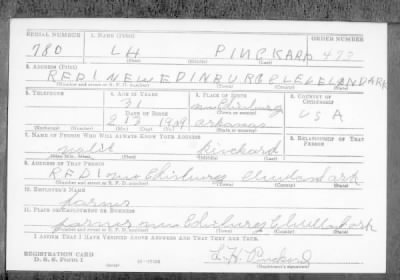 SERIAL NUMBER 1. NAME (Print) ORDER NUMBER
780 LH PINCKARD 473
(First) (Middle) (Last)
2. ADDRESS (Print)
RFD1 NEW EDINBURG CLEVELAND ARK
(Number and street or R. F. D. number) (Town) (County) (State)
3. TELEPHONE 4. AGE IN YEARS 5. PLACE OF BIRTH 6. COUNTRY OF CITIZENSHIP
31 New Edinburg
DATE OF BIRTH (Town or county) USA
2 1909 Arkansas
(Exchange) (Number) (Mo.) (Day) (Yr.) (State or country)
7. NAME OF PERSON WHO WILL ALWAYS KNOW YOUR ADDRESS 8. RELATIONSHIP OF THAT PERSON
Pinckard
(Mr., Mrs., Miss) (First) (Middle) (Last)
9. ADDRESS OF THAT PERSON
RFD1 New Edinburg Cleveland Ark
(Number and street or R. F. D. number) (Town) (County) (State)
10. EMPLOYER'S NAME
farmer
11. PLACE OF EMPLOYMENT OR BUSINESS
farmer New Edinburg Cleveland Ark
(Number and street or R. F. D. number) (Town) (County) (State)
I AFFIRM THAT I HAVE VERIFIED ABOVE ANSWERS AND THAT THEY ARE TRUE.
REGISTRATION CARD
D. S. S. FORM 1 L. H. Pinckard
(Registrant's signature)